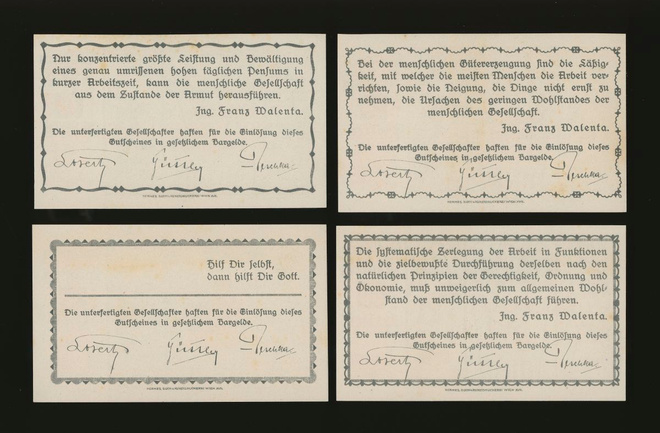 Nur konzentrierte größte Leistung und Bewältigung
eines genau umrissenen hohen täglichen Pensums in
kurzer Arbeitszeit, kann die menschliche Gesellschaft
aus dem Zustande der Armut herausführen.
Ing. Franz Walenta.
Die unterfertigten Gesellschafter haften für die Einlösung dieses
Gutscheines in gesetzlichem Bargelde.
Bei der menschlichen Gütererzeugung sind die Fähig-
keit, mit welcher die meisten Menschen die Arbeit ver-
richten, sowie die Neigung, die Dinge nicht ernst zu
nehmen, die Ursachen des geringen Wohlstandes der
menschlichen Gesellschaft.
Ing. Franz Walenta.
Die unterfertigten Gesellschafter haften für die Einlösung dieses
Gutscheines in gesetzlichem Bargelde.
Hilf Dir selbst,
dann hilft Dir Gott.
Die unterfertigten Gesellschafter haften für die Einlösung dieses
Gutscheines in gesetzlichem Bargelde.
Die systematische Zerlegung der Arbeit in Funktionen
und die zielbewußte Durchführung derselben nach den
natürlichen Prinzipien der Gerechtigkeit, Ordnung und
Ökonomie, muß unweigerlich zum allgemeinen Wohl-
stand der menschlichen Gesellschaft führen.
Ing. Franz Walenta.
Die unterfertigten Gesellschafter haften für die Einlösung dieses
Gutscheines in gesetzlichem Bargelde.